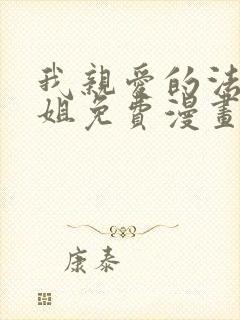 我親愛的法
姐免費漫畫
康泰